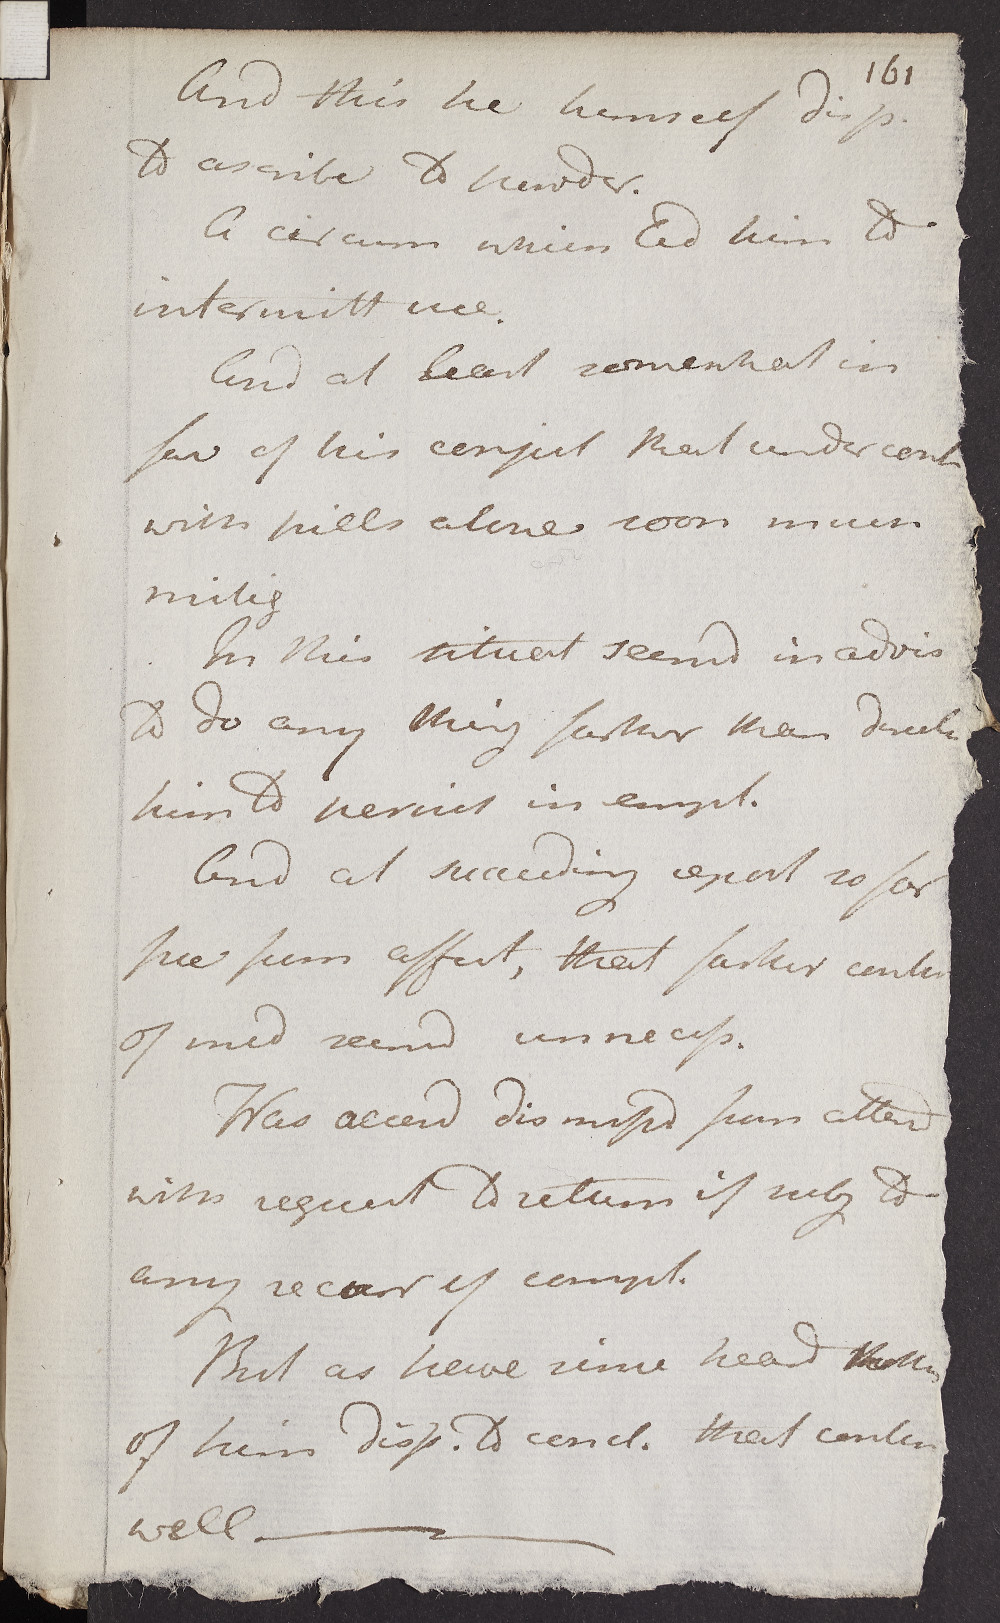 161
And this he himself disp.
to ascribe to powder.
A circum which led him to
intermitt use.
And at least somewhat in
fav of his conject that under cont
with pills alone soon much
mitig
In this situat seemd inadvis
to do any thing farther than direct
him to persist in empl.
And at succeeding report so far
free from affect, that farther contin
of med seemd unnecess.
Was accord dismissd from attend
with request to return if subj to
any recurr of compl.
But as have since heard
of him disp. to concl. that contin
well